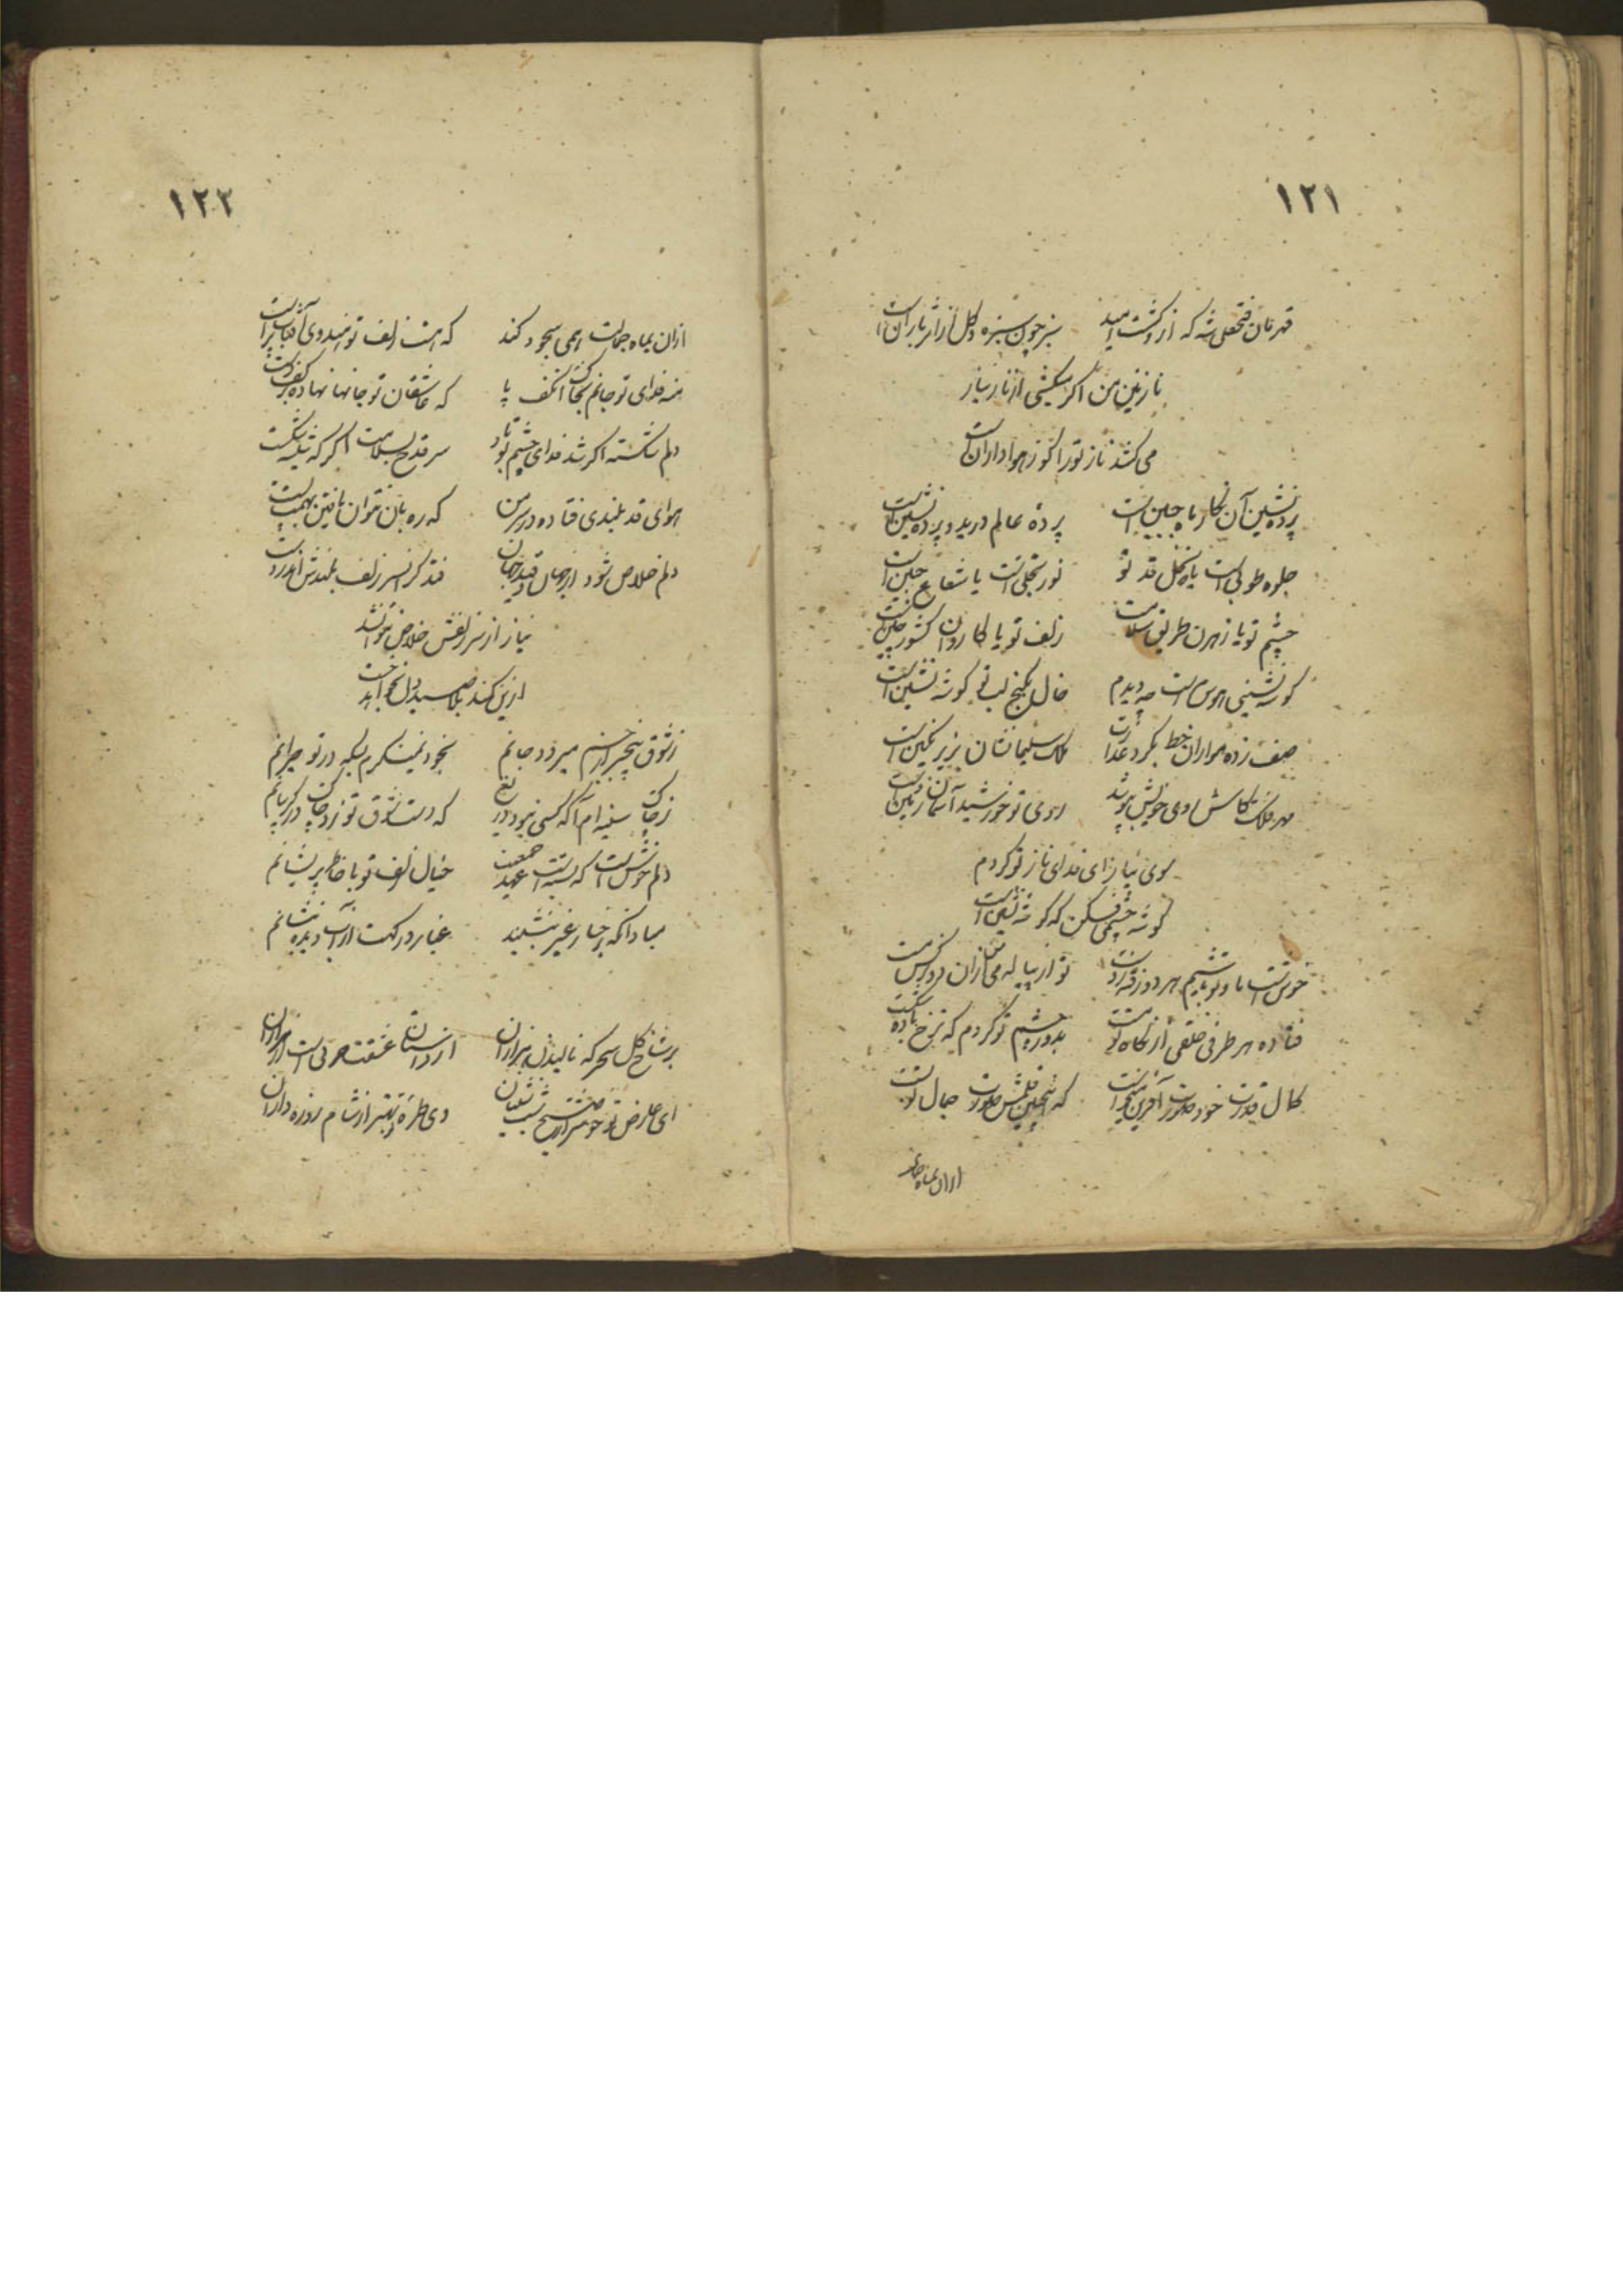 ۱۲۱
قهرمان فتحعلی شه که ازو کشت امید سبز چون سبزه و گل از اثر باران است
نازنین من اگر سکشی از ناز نیاز
می کشد ناز تو را کو ز هواداران است
پرده نشین آن نگار ماه جبین است پرده عالم درید و پرده نشین است
جلوه طوبی است یا نخل قد تو نور تجلی است یا شعاع جبین است
چشم تو یا رهزن طریق سلامت زلف تو یا کاروان کشور چین است
گوشه نشینی هوس است چه دیدم خال بکنج لب تو گوشه نشین است
صف زده مواران خط بگرد عذارت ملک سلیمانشان بزیر نگین است
مهر فلک کاش روی خویش بپوشد روی تو خورشید آسمان و زمین است
سوی نیاز ای فدای ناز تو گردم
گوشه چشمی فکن که گوشه نشین است
خوش است ما و تو باشیم هر دو زقه رز دست تو از پیاله می من از آن دو نرگس مست
فتاده هر طرفی خلقی از نگاه تو مست بدور چشم تو گردم که نرخ باده شکست
کمال قدرت خود صورت آفرین میخواست که اینچنین قلمش صورت جمال تو بست
ازان بماه جمالت
۱۲۲
ازان بماه جمالت همی سجود کند که هست زلف تو هندوی آفتاب پرست
منه فدای تو جانم بخاک آن کف پا که عاشقان تو جانها نهاده بر کف دست
دلم شکسته اگر شد فدای چشم تو باد سر قدح بسلامت اگر که شیشه شکست
هوای قد بلندی فتاده در سر من که ره بان نتوان یافتن بهمت پست
دلم خلاص شود از جهان و قید جهان فتد گر از سر زلف بلندش اندر دست
نیاز از سر زلفش خلاص نتواند
ازین کمند بلا صید دل نخواهد جست
ز شوق بیخبر از جسم میرود جانم بخود نمینگرم بسکه در تو حیرانم
ز چاک سینه ام آگه کسی نبود دریغ که دست شوق تو زد چاک در گریبانم
دلم خوش است که بسته است عهد جمعیت خیال زلف تو با خاطر پریشانم
مبادا آنکه برخسار غیر بنشیند غبار در گهت از آب دیده بنشانم
بر شاخ گل سحر که نالیدن هزاران از داستان عشقت حرفی است از هزاران
ای عارض تو خوشتر از صبح شب نشینان وی طره تو بهتر از شام روزه داران